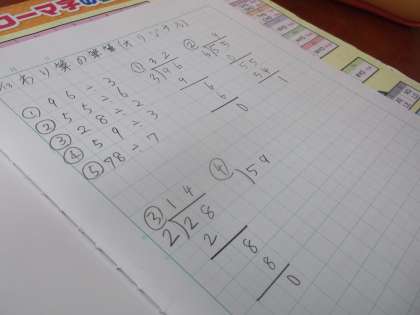 わり算の筆算(オリジナル)
① 96÷3
② 55÷6
③ 28÷2
④ 59÷3
⑤ 98÷7
① 32
3)96
9
6
6
0
②
55
54
1
③ 14
2)28
2
8
8
0
④ )59
ローマ字の